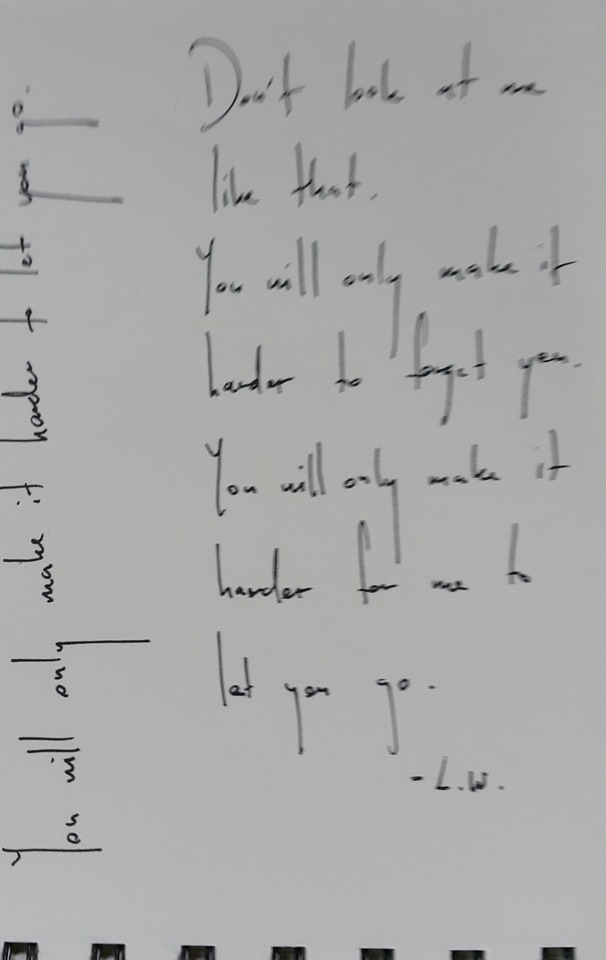 Don't look at me
like that.
You will only make it
harder to forget you.
You will only make it
harder for me to
let you go.
- L.W.
You will only make it harder to let you go.